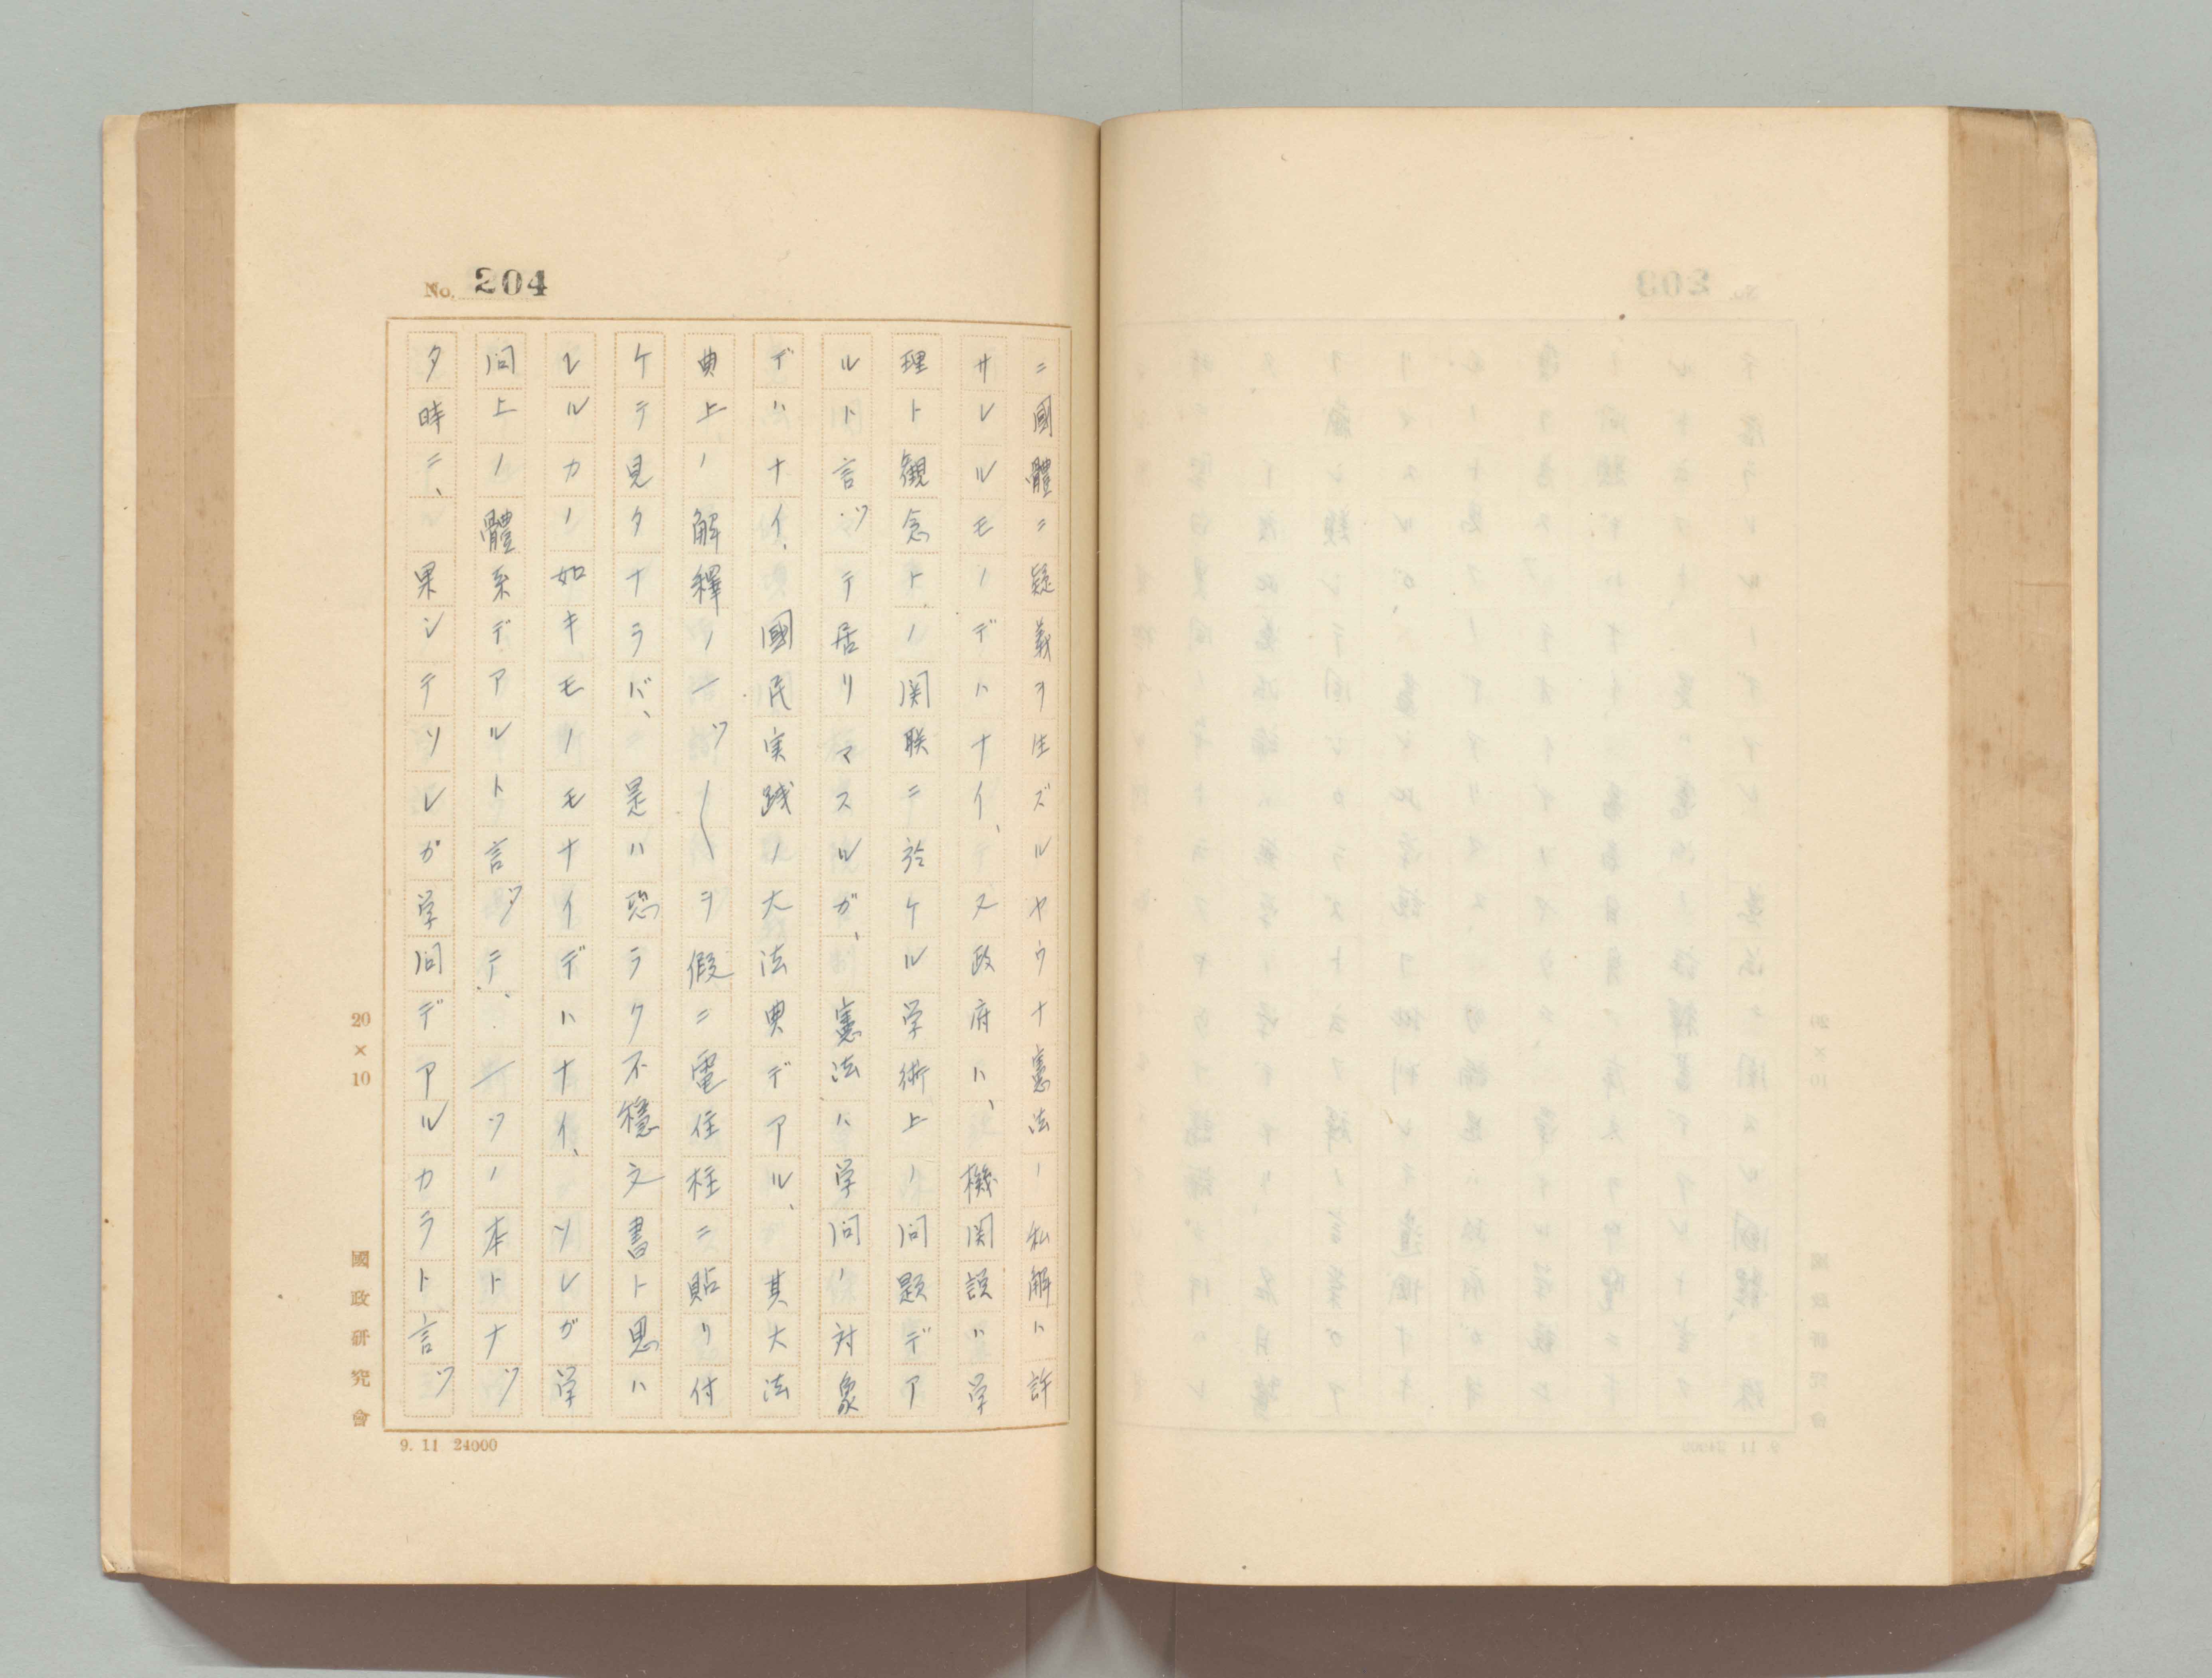 No. 204
ニ國體ニ疑義ヲ生ズルヤウナ憲法ノ私解ハ許
サレルモノデハナイ、又政府ハ、機関説ハ学
理ト観念トノ関聯ニ於ケル学術上ノ問題デア
ルト言ツテ居リマスルガ、憲法ハ学問ノ対象
デハナイ、國民実践ノ大法典デアル、其大法
典上ノ解釋ノ一ツ〱ヲ假ニ電住柱ニ貼リ付
ケテ見タナラバ、是ハ恐ラク不穏文書ト思ハ
レルカノ如キモノモナイデハナイ、ソレガ学
問上ノ體系デアルト言ツテ、一ツノ本トナツ
タ時ニ、果シテソレガ学問デアルカラト言ツ
20×10
國政研究會
9. 11 24000